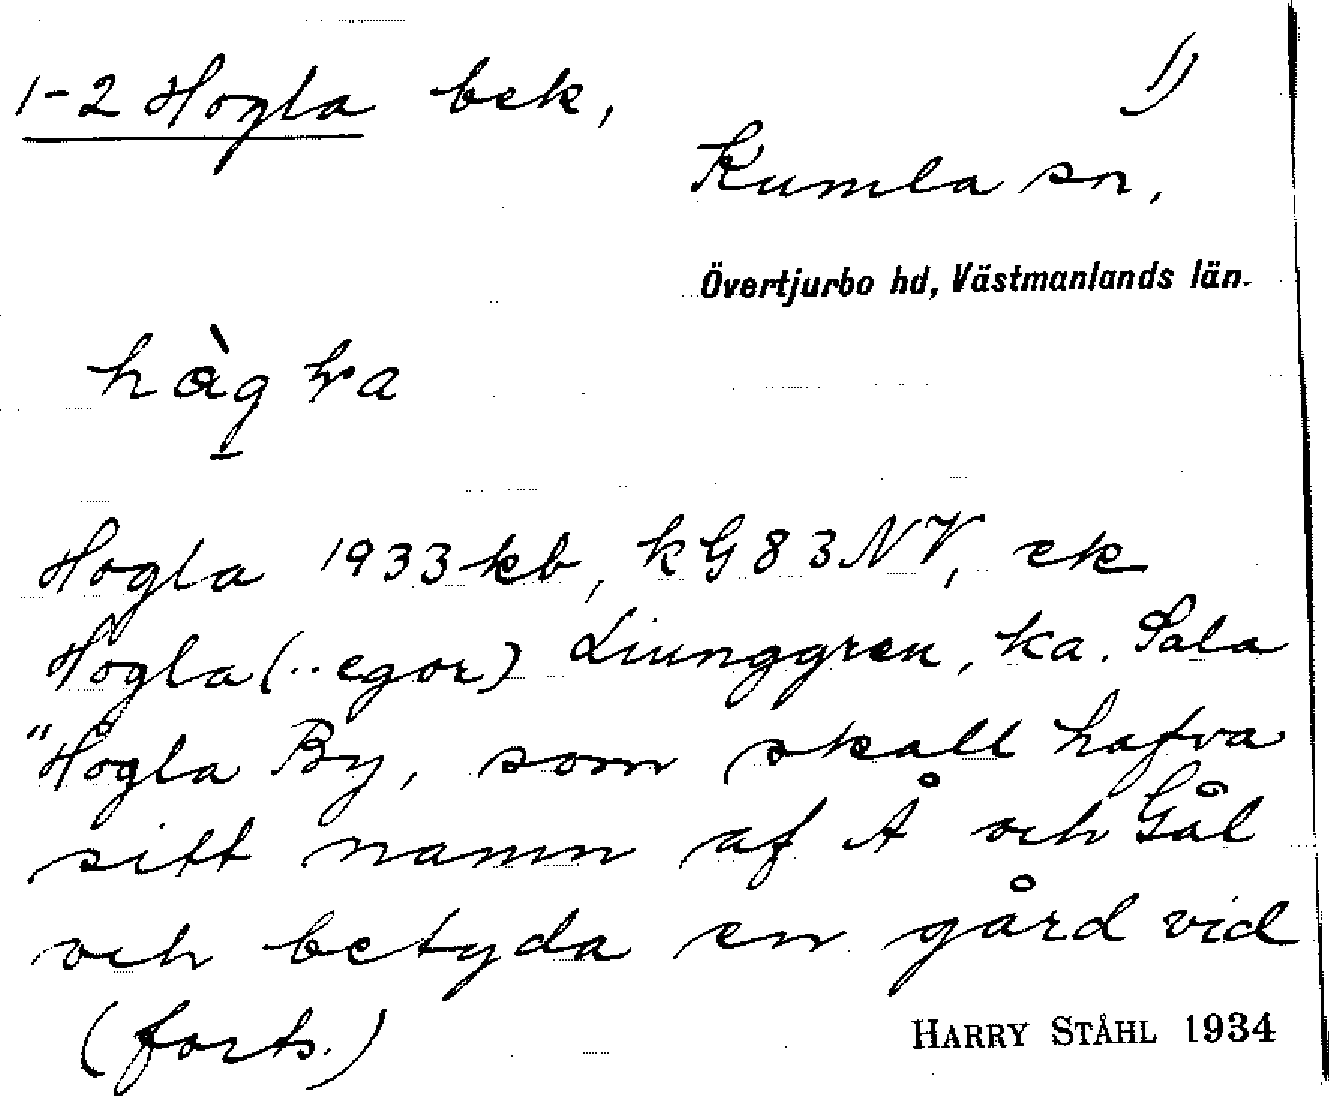 1-2 Hogla bek,
1)
Kumla sn,
Övertjurbo hd, Västmanlands län.
Hogla 1933 kb, kG83NV, ek
Hogla (..egor) Liunggren, ka. Sala
"Högla By, som skall hafva
sitt namn af Å och Gål
och betyda en gård vid
(forts.)
HARRY STÅHL 1934